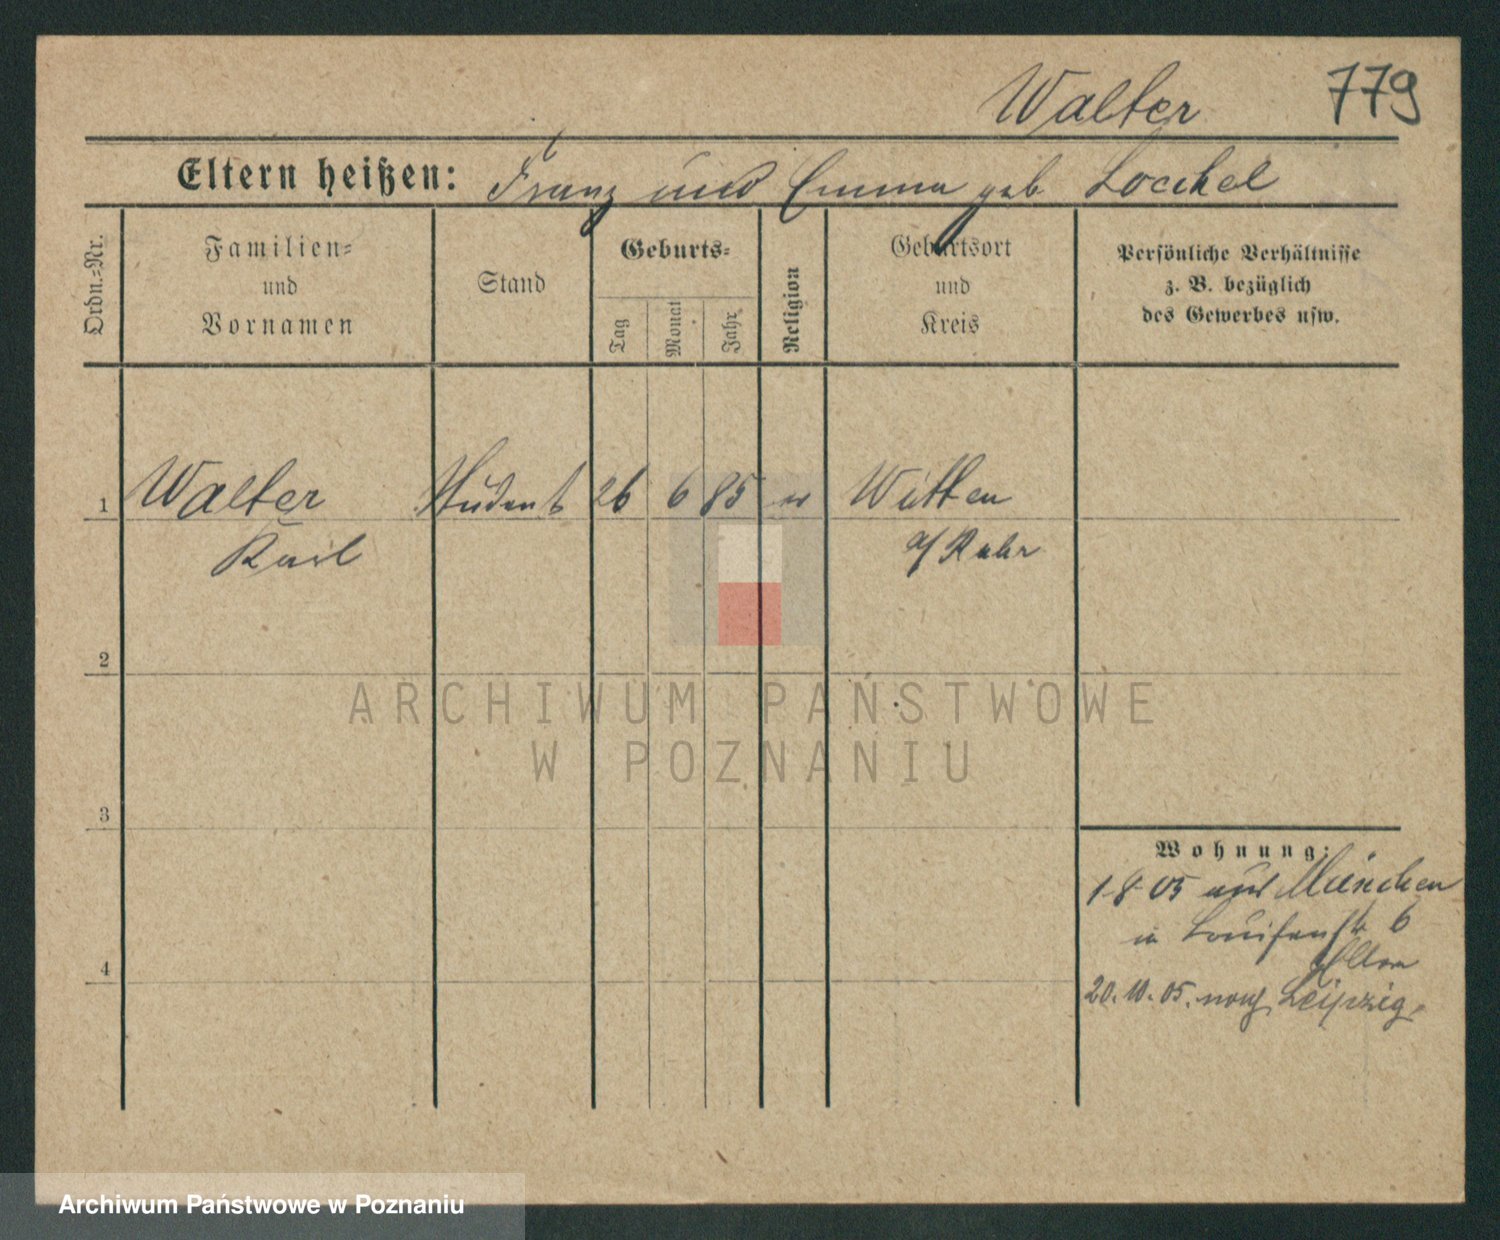 Walter 779
Eltern heißen: Franz und Emma geb. Lockel
Ordn.-Nr.
Familien-
und
Vornamen
Stand
Geburts-
Tag
Monat
Jahr
Religion
Geburtsort
und
Kreis
Persönliche Verhältnisse
z. B. bezüglich
des Gewerbes usw.
1 Walter Student 26 6 85 ev Witten
Karl a/ Ruhr
2
3
4
Wohnung:
1 8 05 aus München
in Louisenstr 6
Eltern
20. 10. 05. nach Leipzig.
ARCHIWUM PAŃSTWOWE
W POZNANIU
Archiwum Państwowe w Poznaniu